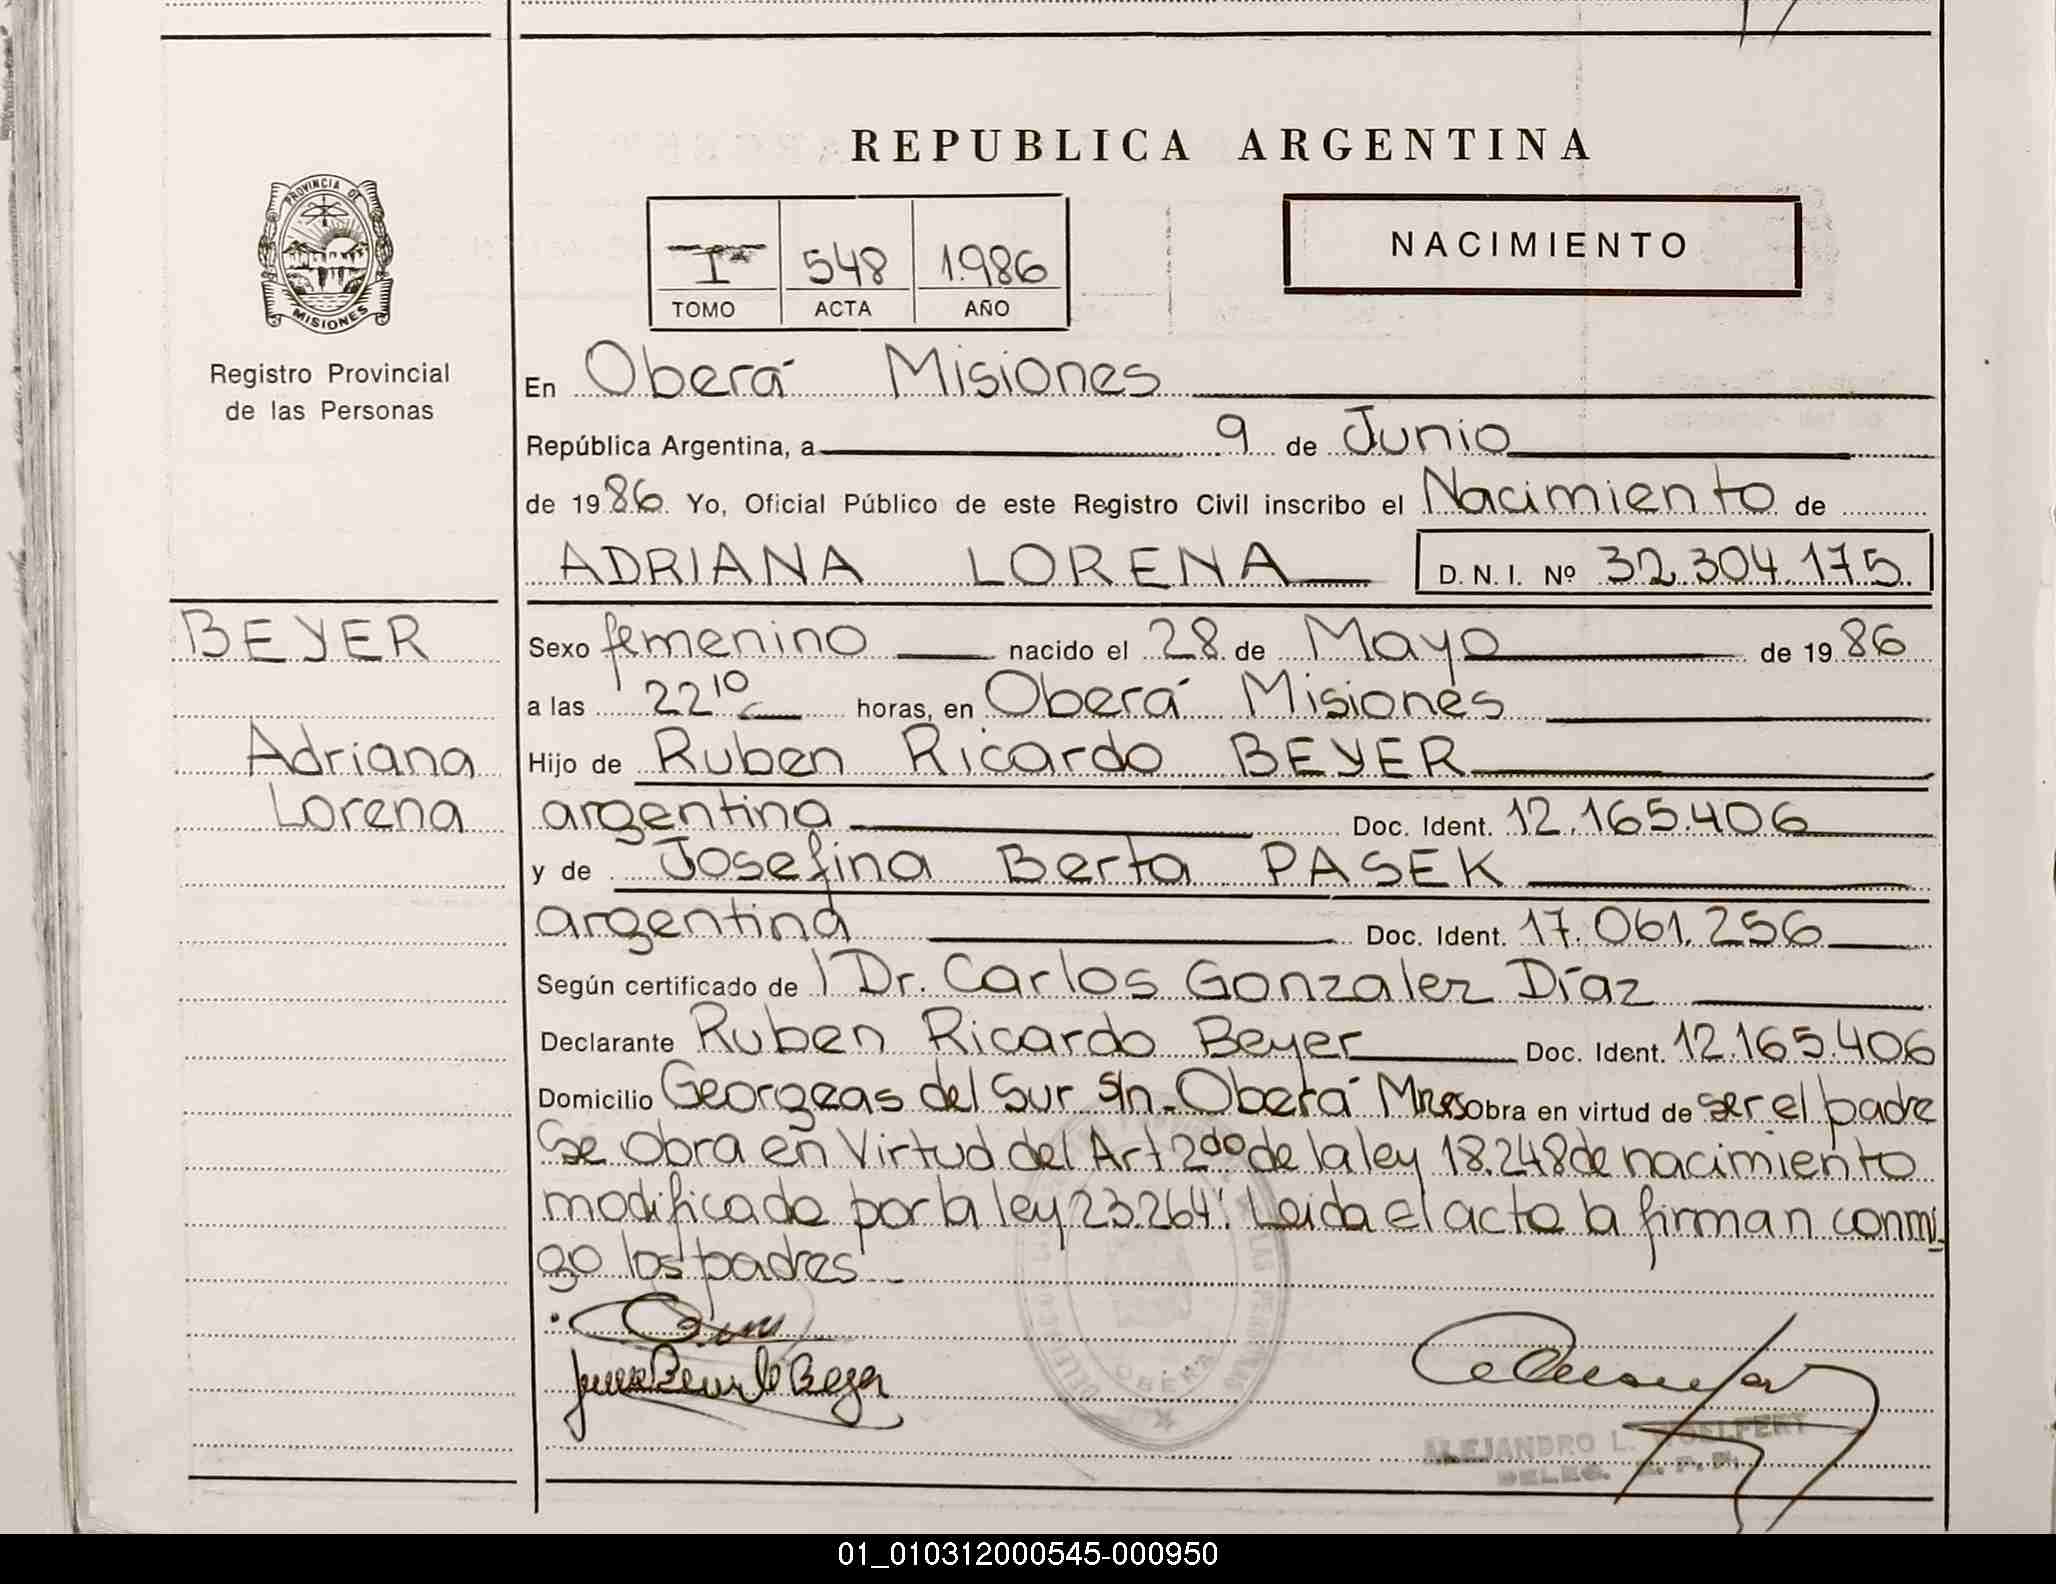 REPUBLICA ARGENTINA
PROVINCIA DE
MISIONES
Registro Provincial
de las Personas
I
548
1.986
TOMO
ACTA
AÑO
NACIMIENTO
En Oberá Misiones
República Argentina, a 9 de Junio
de 1986. Yo, Oficial Público de este Registro Civil inscribo el Nacimiento de
ADRIANA LORENA D.N.I. Nº 32.304.175.
BEYER
Adriana
Lorena
Sexo femenino nacido el 28 de Mayo de 1986
a las 22 10 horas, en Oberá Misiones
Hijo de Ruben Ricardo BEYER
argentina Doc. Ident. 12.165.406
y de Josefina Berta PASEK
argentina Doc. Ident. 17.061.256
Según certificado de Dr. Carlos Gonzalez Díaz
Declarante Ruben Ricardo Beyer Doc. Ident. 12.165.406
Domicilio Georgeas del Sur s/n. Oberá obra en virtud de ser el padre
Se obra en Virtud del Art 2do de la ley 18.248 de nacimiento
modificado por la ley 23.264". Leida el acto la firman conmi_
go los padres
OBERA
ALEJANDRO L. WOELFERT
DELEG. R. P. P.
01_010312000545-000950